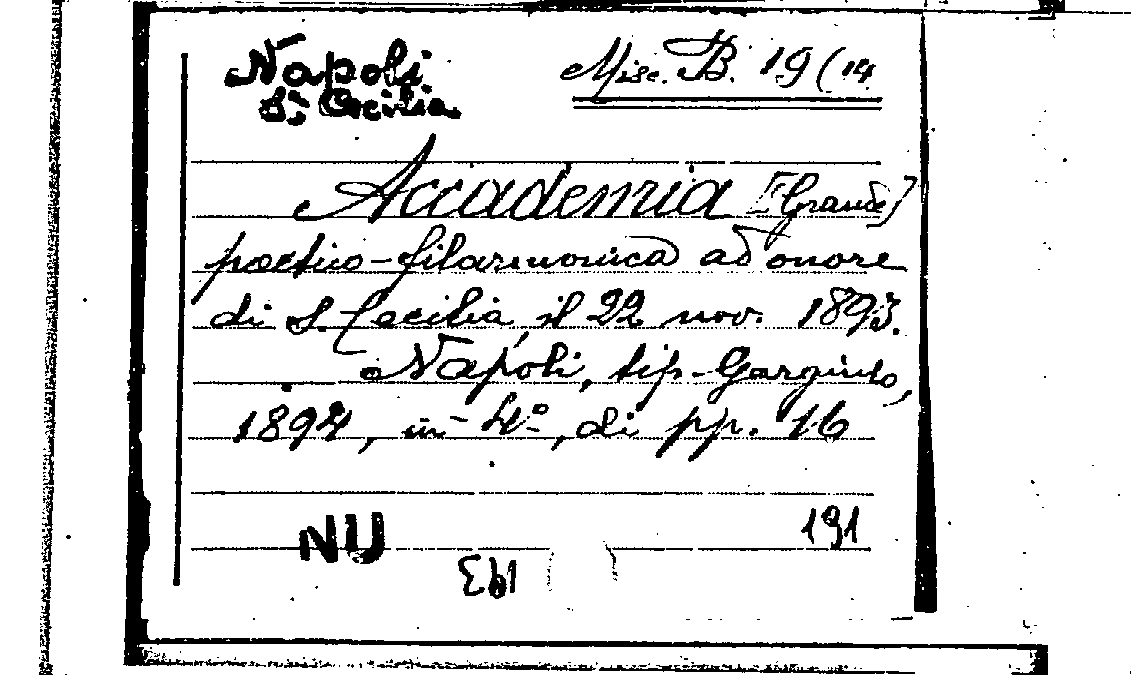 Napoli
S. Cecilia
Misc. B. 19 (14
Accademia [Grande]
poetico-filarmonica ad onore
di S. Cecilia il 22 nov. 1893.
Napoli, tip. Gargiulo,
1894, in-4º, di pp. 16
NU
191
193